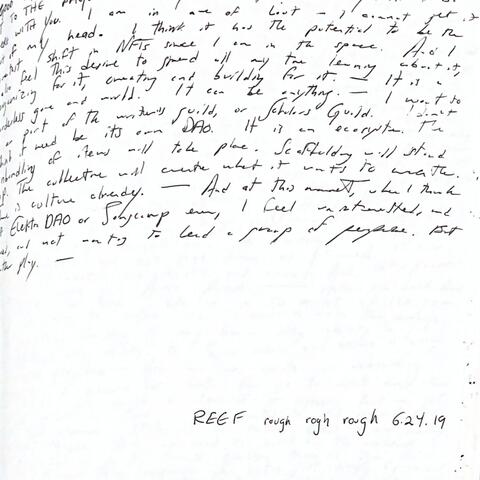 TO THE
with you. I am in awe of Loot – I cannot get it
of my head. I think it has the potential to be the
shift in NFTs since I am in the space. And I
feel this desire to spend all my time learning about it,
organizing for it, creating and building for it. — It is a
game and world. It can be anything. — I want to
or part of the writer's guild, or Scholars Guild. I don't
need be its own DAO. It is an ecosystem. The
of items will take place. Scaffolding will stand
The collective will create what it wants to create.
is culture already. — And at this moment, when I think
Elektra DAO or Songcamp even, I feel uninterested, and
and not wanting to lead a group of people. But
play. —
REEF rough rogh rough 6.24.19